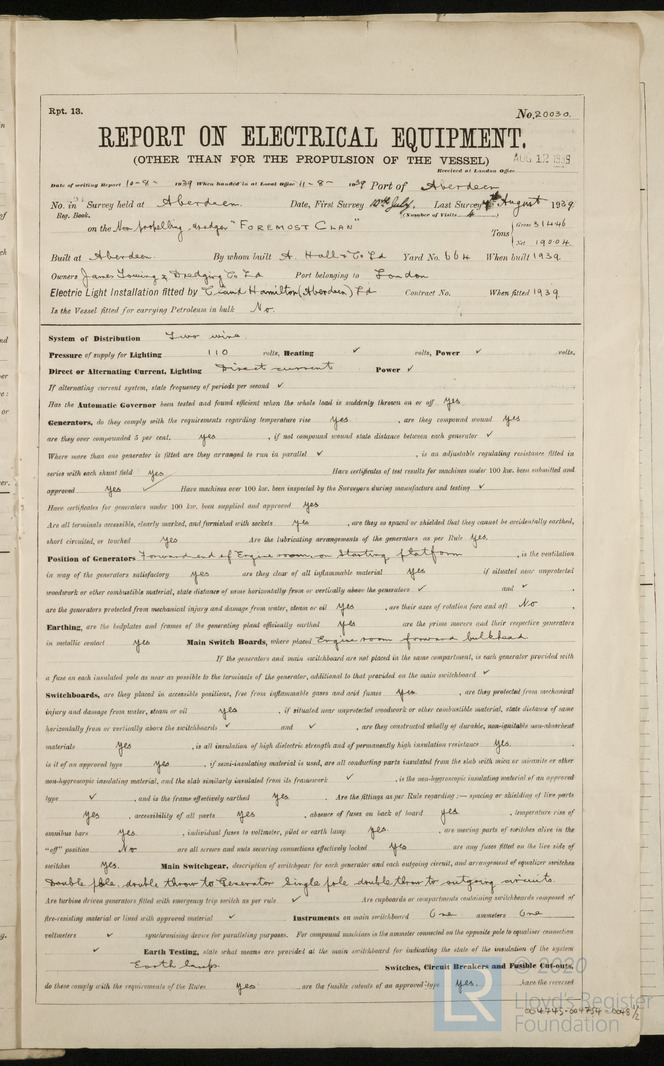 Rpt. 13.
No. 20030.
REPORT ON ELECTRICAL EQUIPMENT.
(OTHER THAN FOR THE PROPULSION OF THE VESSEL)
Received at London Office AUG 12 1939
Date of writing Report 10-8- 1939 When handed in at Local Office 11-8- 1939 Port of Aberdeen
No. in Survey held at Aberdeen. Date, First Survey 10th July, Last Survey August 1939
Reg. Book. (Number of Visits 4)
on the Non propelling dredger "FOREMOST CLAN" Tons { Gross 314.46
Net 190.04
Built at Aberdeen. By whom built A. Hall & Co Ld Yard No. 664 When built 1939
Owners James Towing & Dredging Co Ld Port belonging to London
Electric Light Installation fitted by Hamilton (Aberdeen) Ld Contract No. When fitted 1939
Is the Vessel fitted for carrying Petroleum in bulk No.
System of Distribution Two wire.
Pressure of supply for Lighting 110 volts, Heating ✓ volts, Power ✓ volts.
Direct or Alternating Current, Lighting Direct current Power ✓
If alternating current system, state frequency of periods per second ✓
Has the Automatic Governor been tested and found efficient when the whole load is suddenly thrown on or off yes
Generators, do they comply with the requirements regarding temperature rise yes , are they compound wound yes
are they over compounded 5 per cent. yes , if not compound wound state distance between each generator ✓
Where more than one generator is fitted are they arranged to run in parallel ✓ , is an adjustable regulating resistance fitted in
series with each shunt field yes Have certificates of test results for machines under 100 kw. been submitted and
approved yes Have machines over 100 kw. been inspected by the Surveyors during manufacture and testing ✓
Have certificates for generators under 100 kw. been supplied and approved yes
Are all terminals accessible, clearly marked, and furnished with sockets yes , are they so spaced or shielded that they cannot be accidentally earthed,
short circuited, or touched yes Are the lubricating arrangements of the generators as per Rule yes.
Position of Generators Forward end of Engine room on Starting platform , is the ventilation
in way of the generators satisfactory yes are they clear of all inflammable material yes if situated near unprotected
woodwork or other combustible material, state distance of same horizontally from or vertically above the generators ✓ and ✓ ,
are the generators protected from mechanical injury and damage from water, steam or oil yes , are their axes of rotation fore and aft No ,
Earthing, are the bedplates and frames of the generating plant efficiently earthed yes are the prime movers and their respective generators
in metallic contact yes Main Switch Boards, where placed Engine room forward bulkhead.
If the generators and main switchboard are not placed in the same compartment, is each generator provided with
a fuse on each insulated pole as near as possible to the terminals of the generator, additional to that provided on the main switchboard ✓
Switchboards, are they placed in accessible positions, free from inflammable gases and acid fumes yes , are they protected from mechanical
injury and damage from water, steam or oil yes , if situated near unprotected woodwork or other combustible material, state distance of same
horizontally from or vertically above the switchboards ✓ and ✓ , are they constructed wholly of durable, non-ignitable non-absorbent
materials yes , is all insulation of high dielectric strength and of permanently high insulation resistance yes. ,
is it of an approved type yes , if semi-insulating material is used, are all conducting parts insulated from the slab with mica or micanite or other
non-hygroscopic insulating material, and the slab similarly insulated from its framework ✓ , is the non-hygroscopic insulating material of an approved
type ✓ , and is the frame effectively earthed yes . Are the fittings as per Rule regarding :— spacing or shielding of live parts
yes , accessibility of all parts yes , absence of fuses on back of board yes , temperature rise of
omnibus bars yes. , individual fuses to voltmeter, pilot or earth lamp yes. , are moving parts of switches alive in the
"off" position No are all screws and nuts securing connections effectively locked yes are any fuses fitted on the live side of
switches yes. Main Switchgear, description of switchgear for each generator and each outgoing circuit, and arrangement of equalizer switches
Double pole, double throw to Generator single pole double throw to outgoing circuits.
Are turbine driven generators fitted with emergency trip switch as per rule ✓ Are cupboards or compartments containing switchboards composed of
fire-resisting material or lined with approved material ✓ Instruments on main switchboard One ammeters One
voltmeters ✓ synchronising device for paralleling purposes. For compound machines is the ammeter connected on the opposite pole to equaliser connection
✓ Earth Testing, state what means are provided at the main switchboard for indicating the state of the insulation of the system
Earth lamp. Switches, Circuit Breakers and Fusible Cut-outs,
do these comply with the requirements of the Rules yes are the fusible cutouts of an approved type yes. have the reversed
© 2020
LR Lloyd's Register
Foundation
004743-004754-0048 1/2